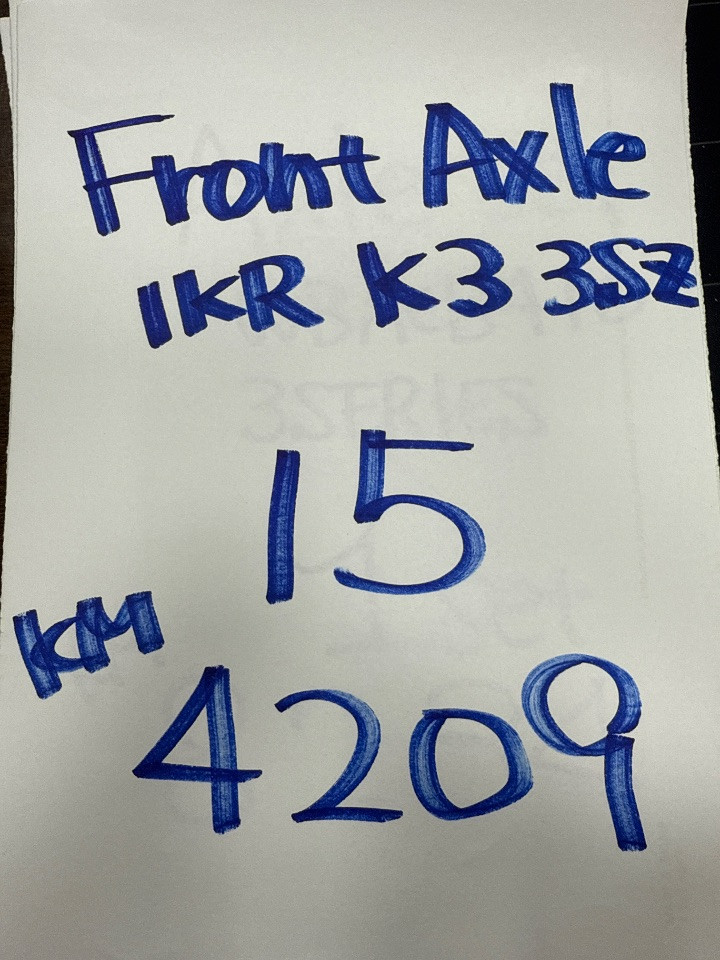 Front Axle
1KR K3 3SZ
15
KM
4209